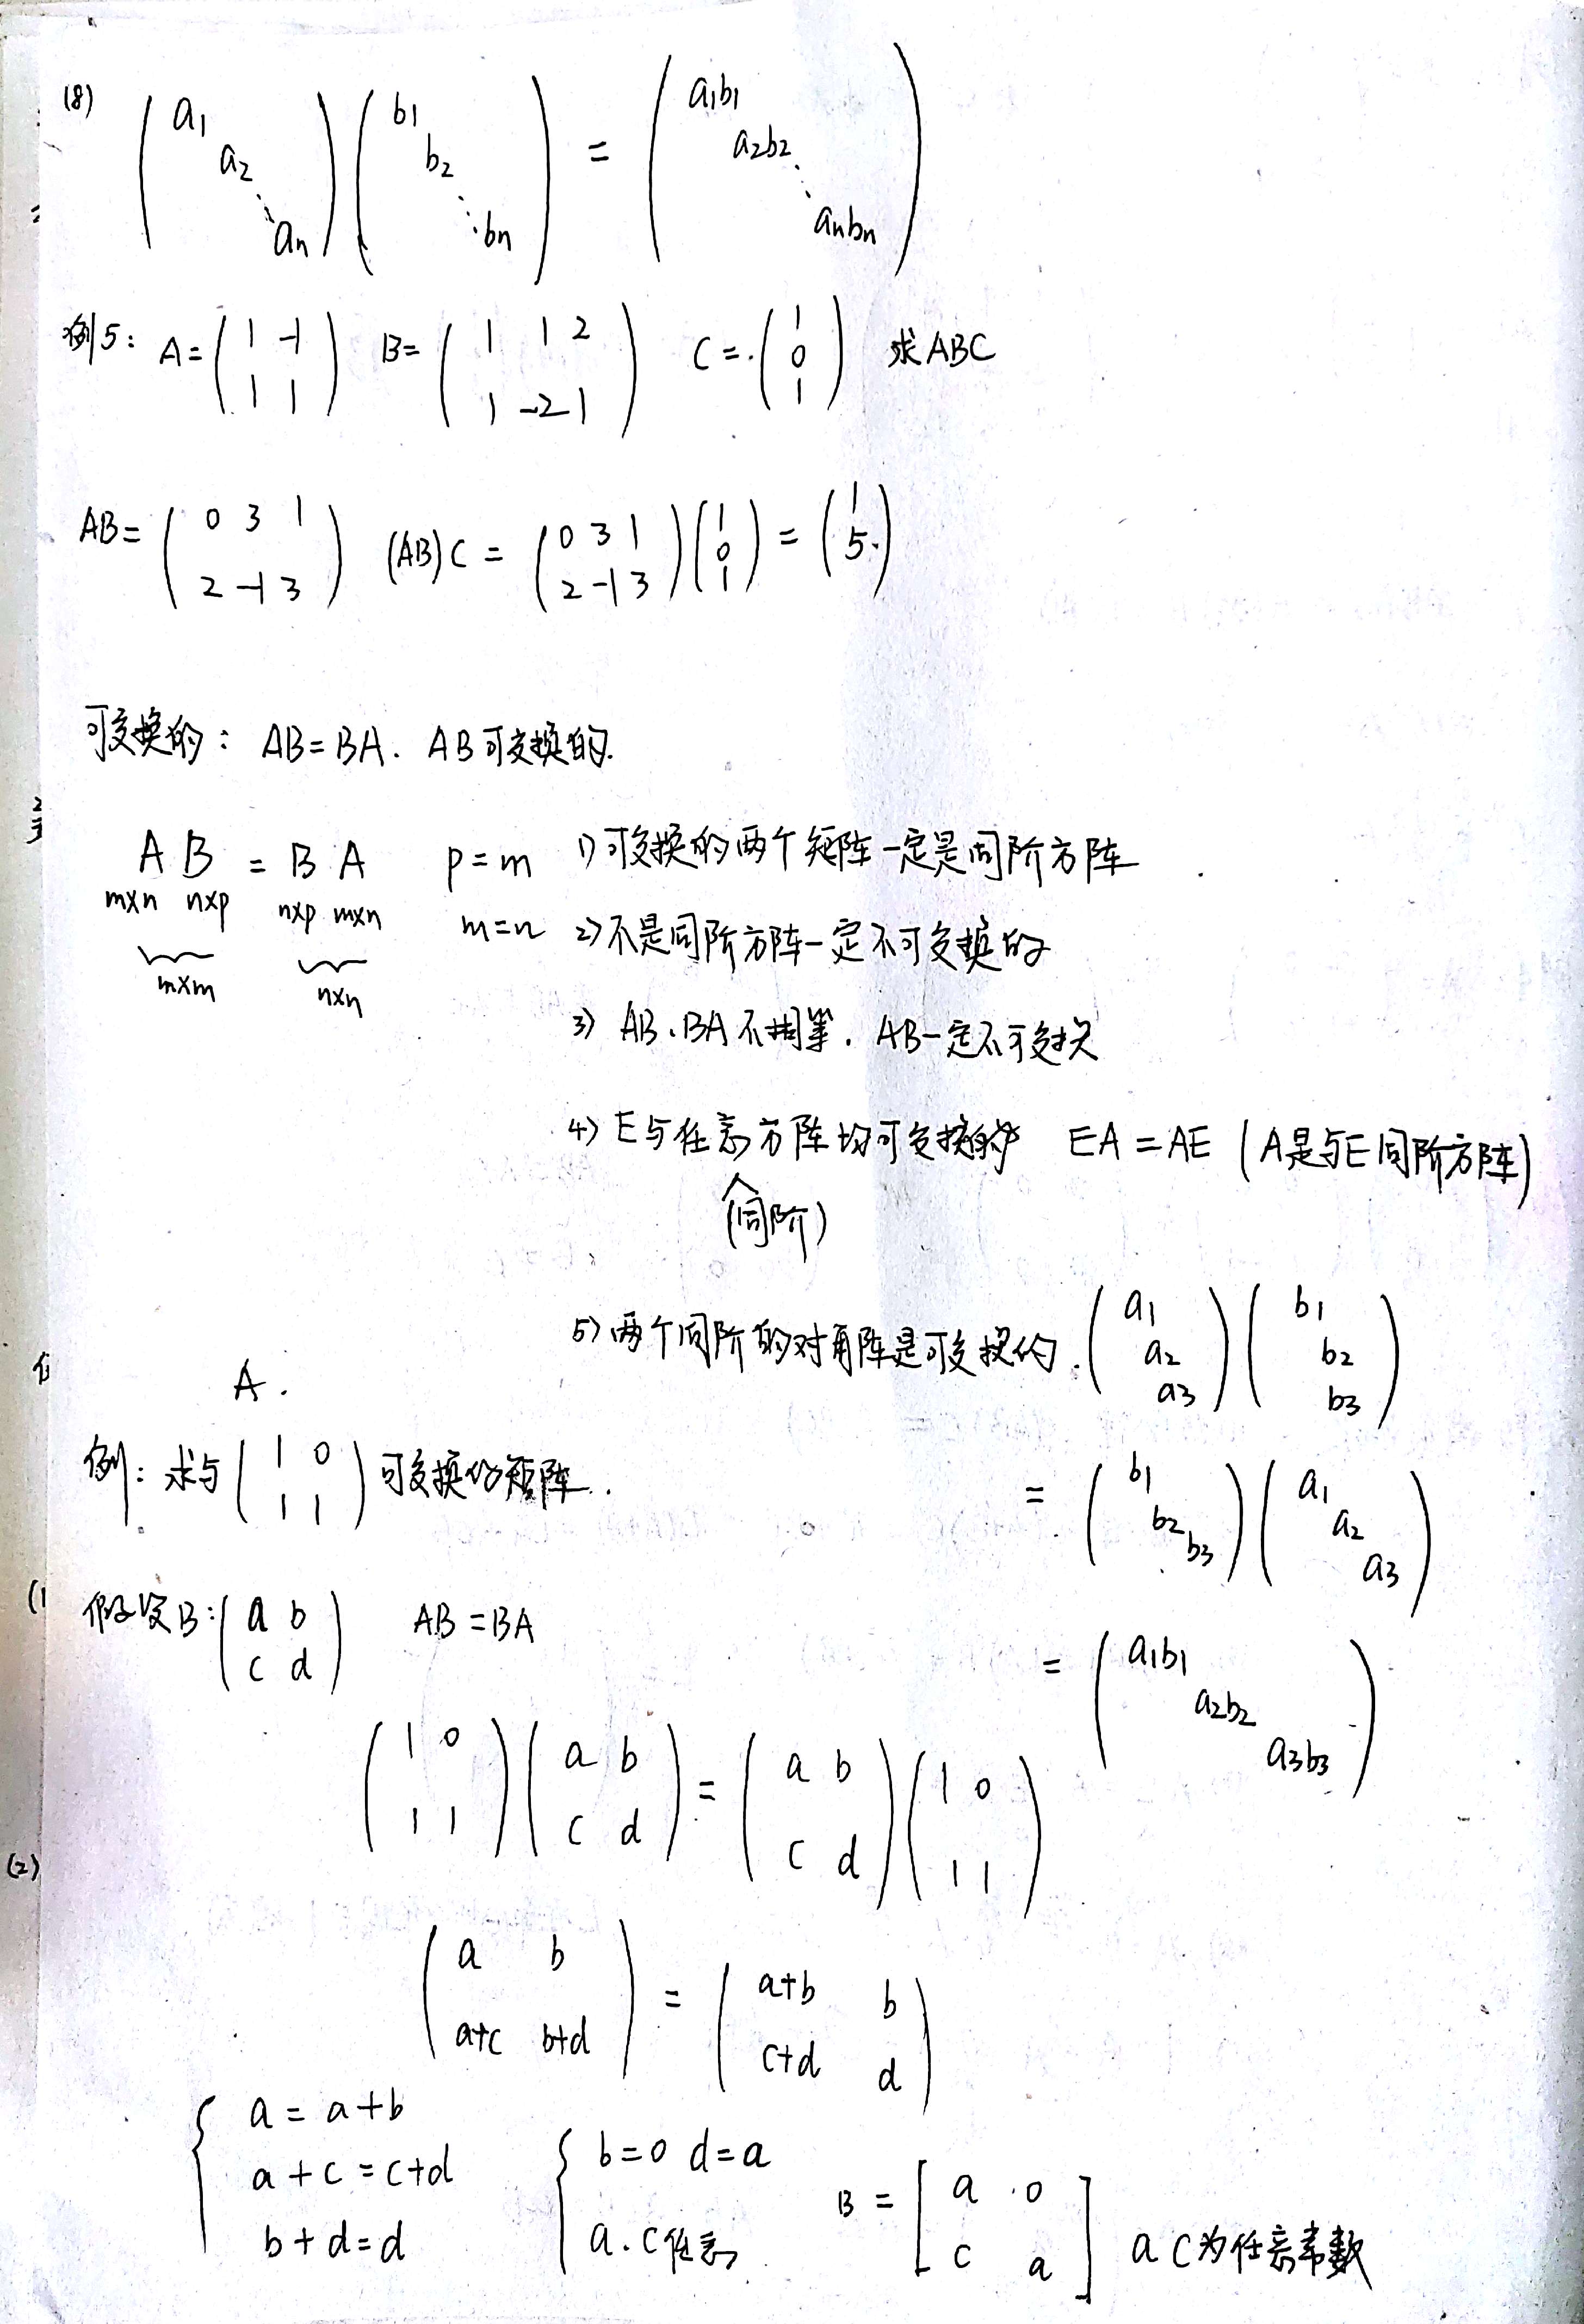 (8) ( a1 a2 ⋱ an ) ( b1 b2 ⋱ bn ) = ( a1b1 a2b2 ⋱ anbn )
例5: A = ( 1 -1 ; 1 1 ) B = ( 1 1 2 ; 1 -2 1 ) C = ( 1 ; 0 ; 1 ) 求ABC
AB = ( 0 3 1 ; 2 -1 3 ) (AB)C = ( 0 3 1 ; 2 -1 3 ) ( 1 ; 0 ; 1 ) = ( 1 ; 5 )
可交换的: AB=BA. AB可交换的.
A B = B A p=m 1)可交换的两个矩阵一定是同阶方阵
m×n n×p n×p m×n m=n 2)不是同阶方阵一定不可交换的
m×m n×n
3) AB、BA不相等. AB一定不可交换
4) E与任意方阵均可交换的 EA=AE (A是与E同阶方阵)
(同阶)
5) 两个同阶的对角阵是可交换的. ( a1 a2 a3 ) ( b1 b2 b3 )
= ( b1 b2 b3 ) ( a1 a2 a3 )
= ( a1b1 a2b2 a3b3 )
A.
例: 求与 ( 1 0 ; 1 1 ) 可交换的矩阵.
假设B: ( a b ; c d ) AB=BA
( 1 0 ; 1 1 ) ( a b ; c d ) = ( a b ; c d ) ( 1 0 ; 1 1 )
( a b ; a+c b+d ) = ( a+b b ; c+d d )
{ a=a+b
a+c=c+d
b+d=d
{ b=0 d=a
a.c任意
B = [ a 0 ; c a ] a c为任意常数
(1
(2)